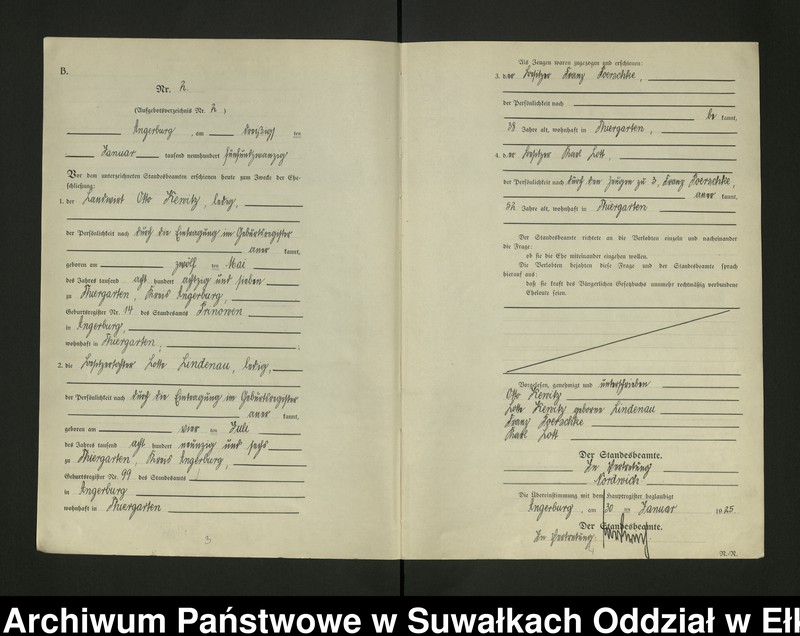 B.
Nr. 2
(Aufgebotsverzeichnis Nr. 2)
Angerburg, am dreißigsten
Januar tausend neunhundert fünfundzwanzig
Vor dem unterzeichneten Standesbeamten erschienen heute zum Zwecke der Ehe-
schließung:
1. der Landwirt Otto Kewitz, ledig,
der Persönlichkeit nach durch die Eintragung im Geburtsregister
aner kannt,
geboren am zwölf ten Mai
des Jahres tausend acht hundert achtzig und sieben
zu Thiergarten, Kreis Angerburg,
Geburtsregister Nr. 14 des Standesamts Prinowen
in Angerburg,
wohnhaft in Thiergarten;
2. die Besitzertochter Lotte Lindenau, ledig,
der Persönlichkeit nach durch die Eintragung im Geburtsregister
aner kannt,
geboren am vier ten Juli
des Jahres tausend acht hundert neunzig und sechs
zu Thiergarten, Kreis Angerburg,
Geburtsregister Nr. 99 des Standesamts
in Angerburg
wohnhaft in Thiergarten
3
Als Zeugen waren zugezogen und erschienen:
3. der Besitzer Franz Boerschke,
der Persönlichkeit nach
be kannt,
38 Jahre alt, wohnhaft in Thiergarten,
4. der Besitzer Karl Lott,
der Persönlichkeit nach durch den Zeugen zu 3, Franz Boerschke,
aner kannt,
52 Jahre alt, wohnhaft in Thiergarten
Der Standesbeamte richtete an die Verlobten einzeln und nacheinander
die Frage:
ob sie die Ehe miteinander eingehen wollen.
Die Verlobten bejahten diese Frage und der Standesbeamte sprach
hierauf aus:
daß sie kraft des Bürgerlichen Gesetzbuchs nunmehr rechtmäßig verbundene
Eheleute seien.
Vorgelesen, genehmigt und unterschrieben
Otto Kewitz
Lotte Kewitz geborene Lindenau
Franz Boerschke
Karl Lott
Der Standesbeamte.
In Vertretung
Nordwich
Die Übereinstimmung mit dem Hauptregister beglaubigt
Angerburg, am 30 ten Januar 1925
Der Standesbeamte.
In Vertretung:
N.-R.
Archiwum Państwowe w Suwałkach Oddział w Ełk